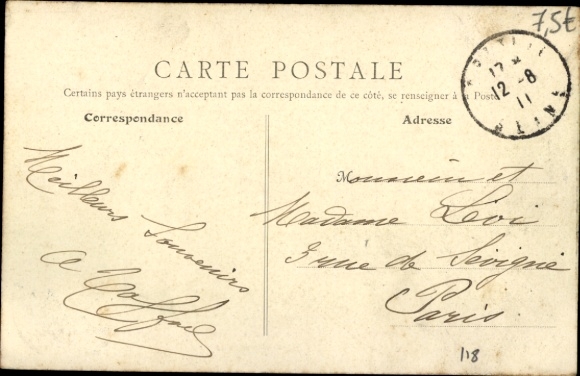 7,5€
CARTE POSTALE
Certains pays étrangers n'acceptant pas la correspondance de ce côté, se renseigner à la Poste
Correspondance
Adresse
12 -8
11
Meilleurs Souvenirs
Monsieur et
Madame Lévi
3 rue de Sévigné
Paris.
118